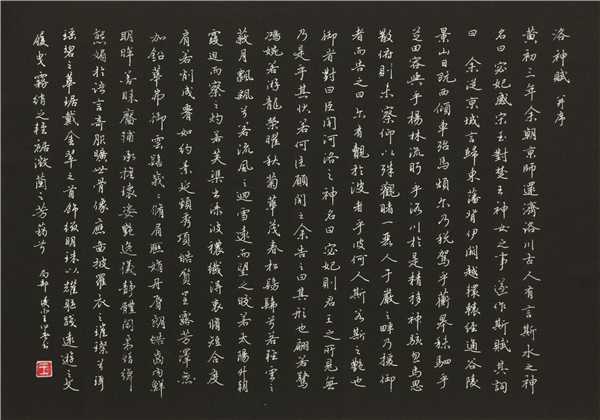 洛神賦 并序
黃初三年余朝京師還濟洛川古人有言斯水之神
名曰宓妃感宋玉對楚王神女之事遂作斯賦其詞
曰 余從京域言歸東藩背伊闕越轘轅經通谷陵
景山日既西傾車殆馬煩尔乃稅駕乎蘅皋秣駟乎
芝田容與乎楊林流眄乎洛川於是精移神駭忽焉思
散俯則未察仰以殊觀睹一麗人于巖之畔乃援御
者而告之曰尔有覿於彼者乎彼何人斯若斯之艷也
御者對曰臣聞河洛之神名曰宓妃則君王之所見無
乃是乎其狀若何臣願聞之余告之曰其形也翩若驚
鴻婉若游龍榮曜秋菊華茂春松髣髴兮若輕雲之
蔽月飄颻兮若流風之迴雪遠而望之皎若太陽升朝
霞迫而察之灼若芙蕖出淥波穠纖得衷脩短合度
肩若削成腰如約素延頸秀項皓質呈露芳澤無
加鉛華弗御雲髻峩峩脩眉聯娟丹唇朗皓齒內鮮
明眸善睞靨輔承權瓌姿艷逸儀靜體閑柔情綽
態媚於語言奇服曠世骨像應圖披羅衣之璀璨兮珥
瑤碧之華琚戴金翠之首飾綴明珠以耀軀踐遠遊之文
履曳霧綃之輕裾微蘭之芳藹兮